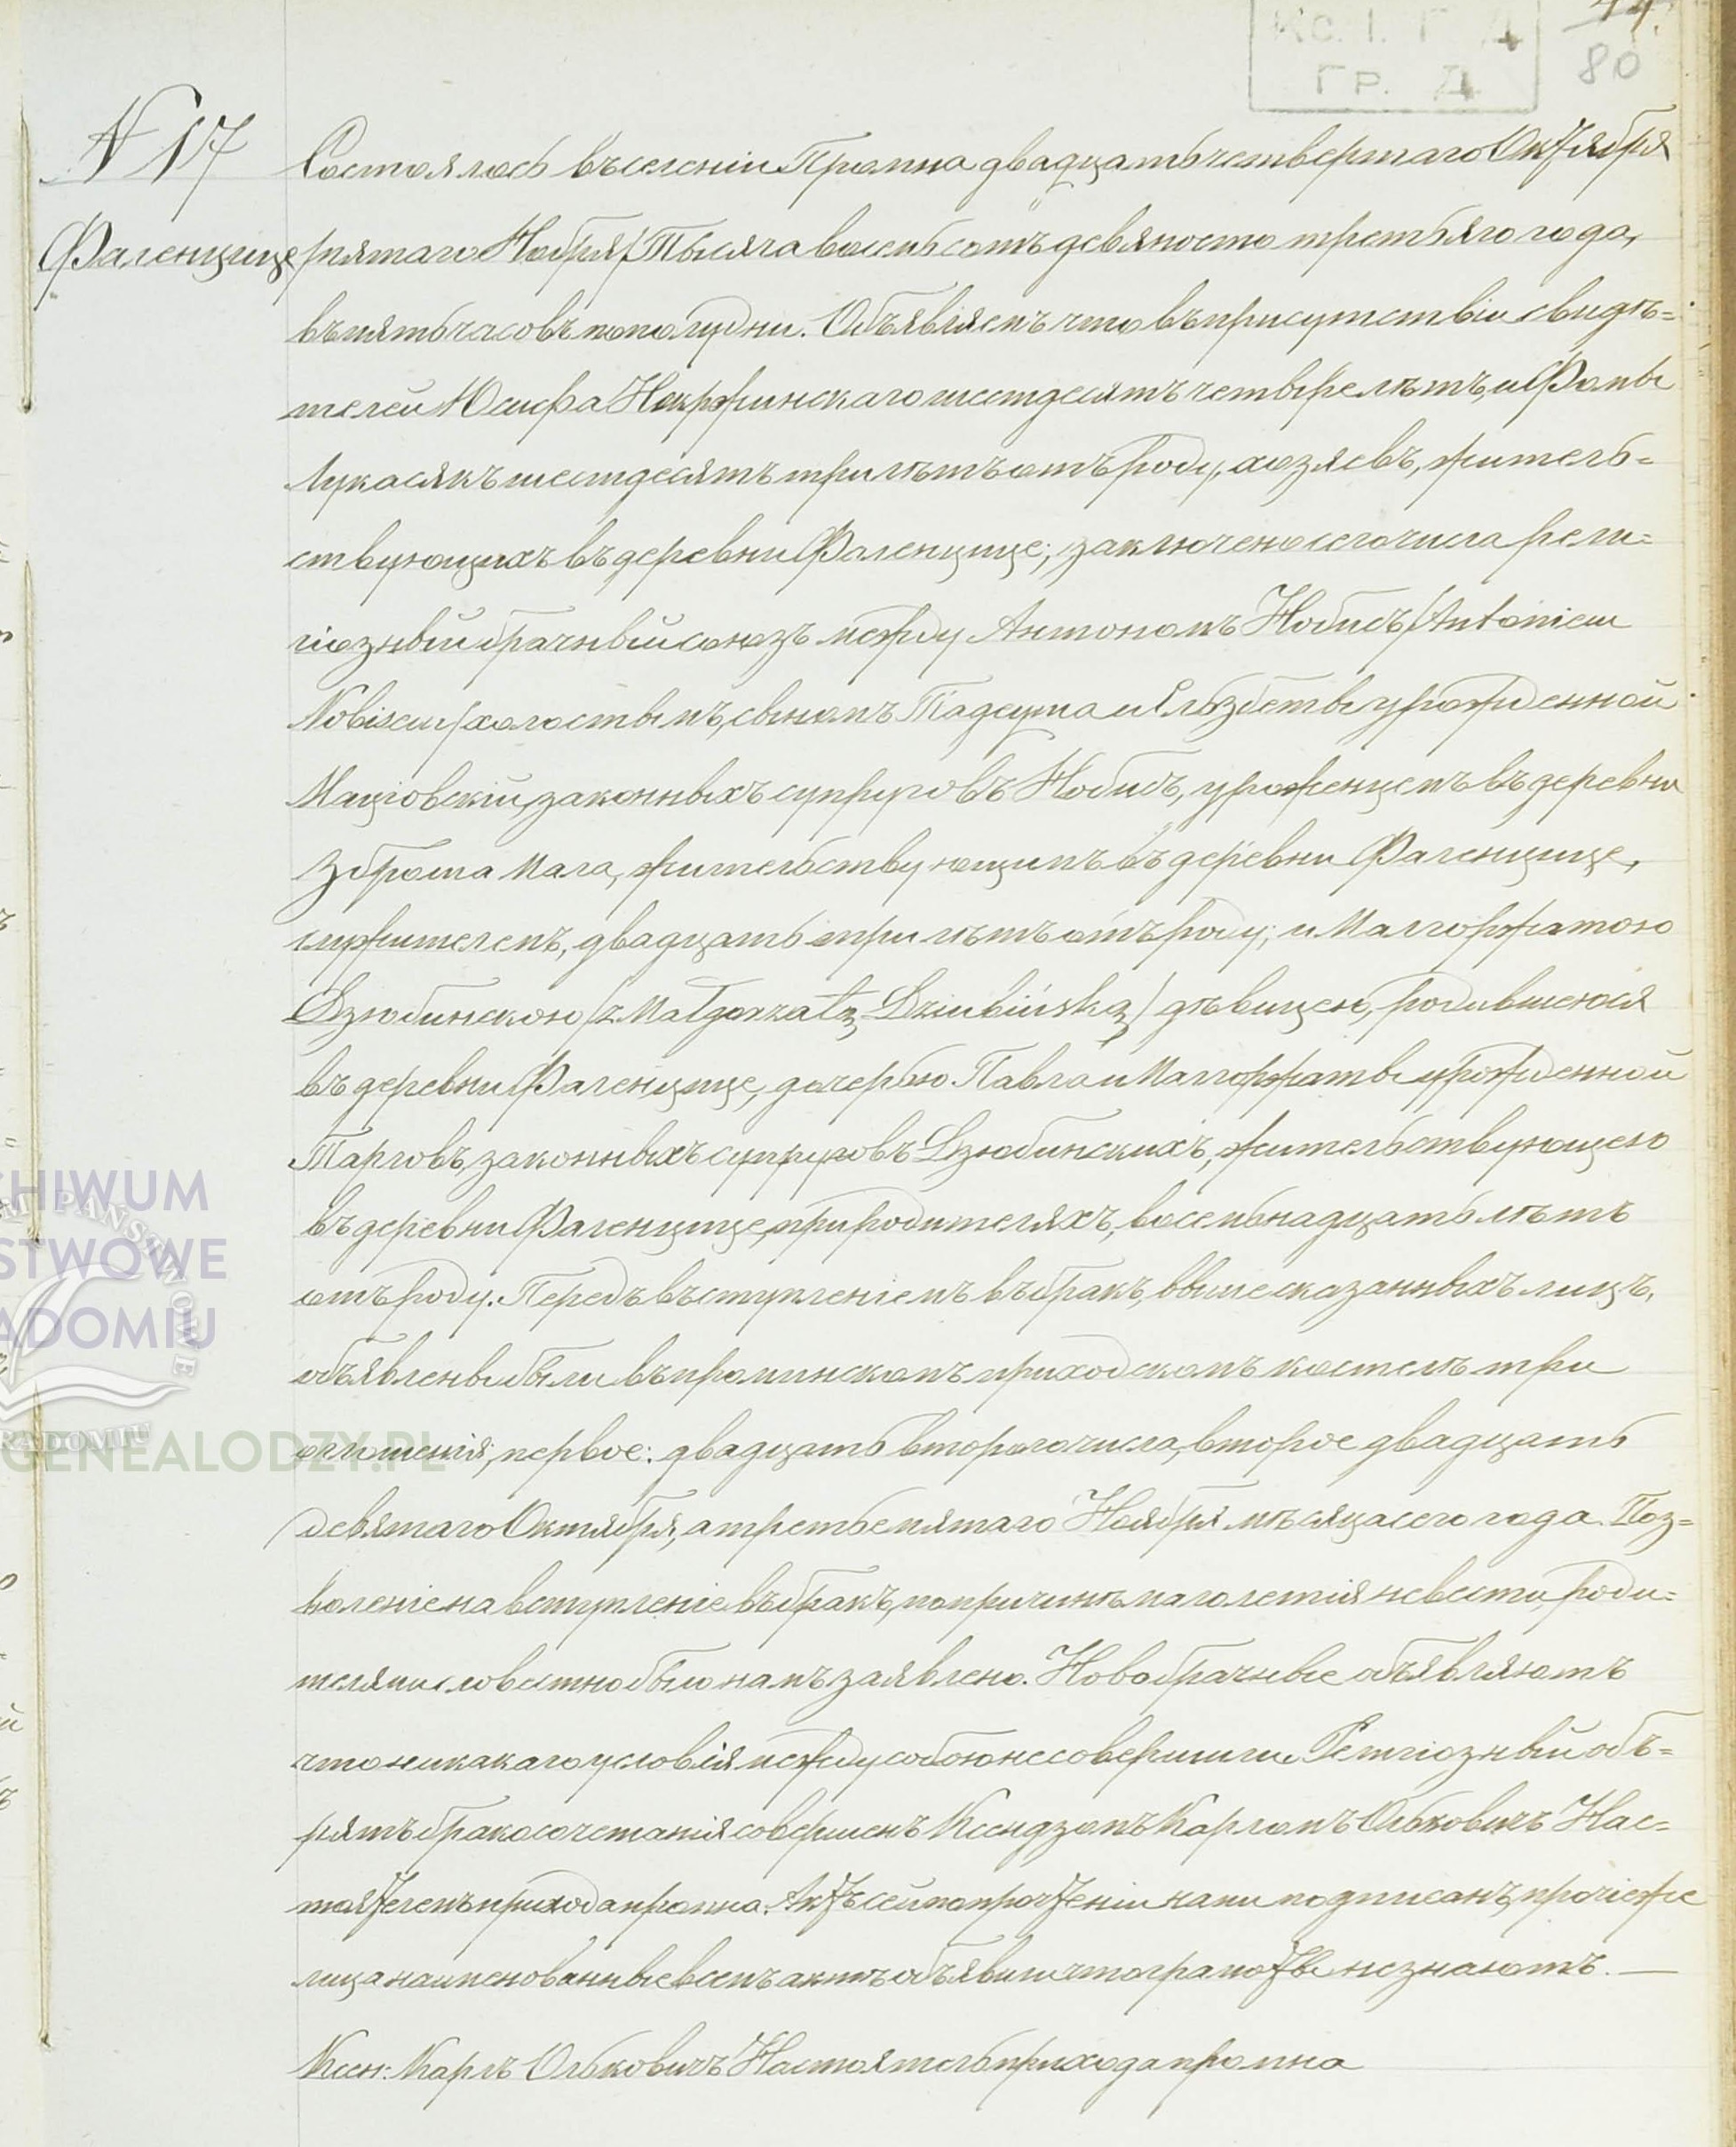 Кс. I. Г Д
Гр. Д
44.
80
N 17
Фаленцице
Состоялось въ селеніи Промна двадцать четвертаго Октября
/пятаго Ноября/ Тысяча восемьсотъ девяносто третьяго года,
въ пять часовъ пополудни. Объявляемъ что въ присутствіи свидѣ=
телей Юсифа шестдесятъ четыре лѣтъ, и Фомы
Лукасякъ шестдесятъ три лѣтъ отъ роду, хозяевъ, житель=
ствующихъ въ деревни Фаленцице; заключено сего числа рели=
гіозный брачный союзъ между Антономъ Нобисъ /Antoniem
Nobisem/ холостымъ, сыномъ Тадеуша и Ельзбеты урожденной
Маціовскій, законныхъ супруговъ Нобисъ, уроженцемъ въ деревни
Зброша Мала, жительствующимъ въ деревни Фаленцице,
служителемъ, двадцать три лѣтъ отъ роду; и Малгоржатою
Дзюбинскою /z Małgorzatą Dziubińską/ дѣвицею, родившеюся
въ деревни Фаленцице, дочерью Павла и Малгоржаты урожденной
Тарговъ, законныхъ супруговъ Дзюбинскихъ, жительствующею
въ деревни Фаленцице, при родителяхъ, восемьнадцать лѣтъ
отъ роду. Передъ въступленіемъ въ бракъ, вышесказанныхъ лицъ,
объявлены были въ промнинскомъ приходскомъ костелѣ три
оглошенія, первое: двадцать второго числа, второе двадцать
девятаго Октября, а третье пятаго Ноября мѣсяца сего года. Поз=
воленіе на вступленіе въ бракъ, по причинѣ малолетія невесты, роди=
телями словестно было намъ заявлено. Новобрачные объявляютъ
что никакаго условія между собою не совершили. Религіозный объ=
рятъ бракосочетанія совершенъ Ксендзомъ Карломъ Олькович Нас=
тоятелемъ прихода промна. Актъ сей по прочтеніи нами подписанъ, прочіе же
лица наименованные в семъ актѣ объявили что грамоты не знаютъ. —
Ксен: Карлъ Ольковичъ Настоятель прихода промна
ARCHIWUM
PAŃSTWOWE
RADOMIU
GENEALODZY.PL